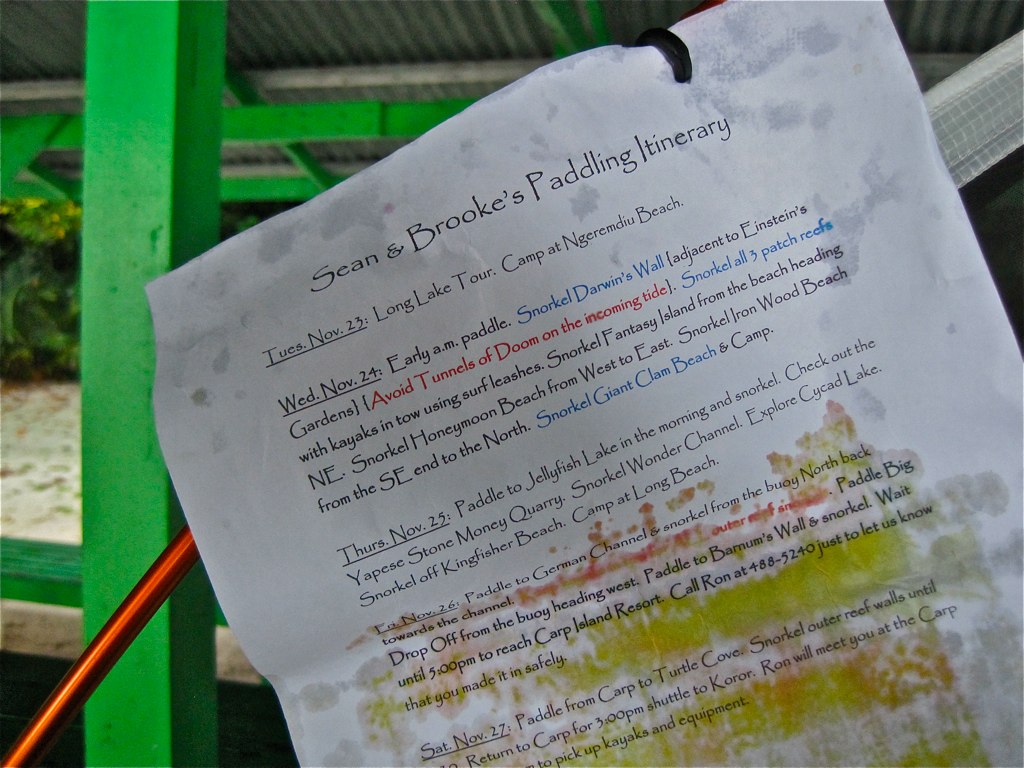 Sean & Brooke's Paddling Itinerary
Tues. Nov. 23: Long Lake Tour. Camp at Ngeremdiu Beach.
Wed. Nov. 24: Early a.m. paddle. Snorkel Darwin's Wall {adjacent to Einstein's
Gardens} {Avoid Tunnels of Doom on the incoming tide}. Snorkel all 3 patch reefs
with kayaks in tow using surf leashes. Snorkel Fantasy Island from the beach heading
NE. Snorkel Honeymoon Beach from West to East. Snorkel Iron Wood Beach
from the SE end to the North. Snorkel Giant Clam Beach & Camp.
Thurs. Nov. 25: Paddle to Jellyfish Lake in the morning and snorkel. Check out the
Yapese Stone Money Quarry. Snorkel Wonder Channel. Explore Cycad Lake.
Snorkel off Kingfisher Beach. Camp at Long Beach.
Fri. Nov. 26: Paddle to German Channel & snorkel from the buoy North back
towards the channel. outer reef . Paddle Big
Drop Off from the buoy heading west. Paddle to Barnum's Wall & snorkel. Wait
until 5:00pm to reach Carp Island Resort. Call Ron at 488-5240 just to let us know
that you made it in safely.
Sat. Nov. 27: Paddle from Carp to Turtle Cove. Snorkel outer reef walls until
Return to Carp for 3:00pm shuttle to Koror. Ron will meet you at the Carp
to pick up kayaks and equipment.